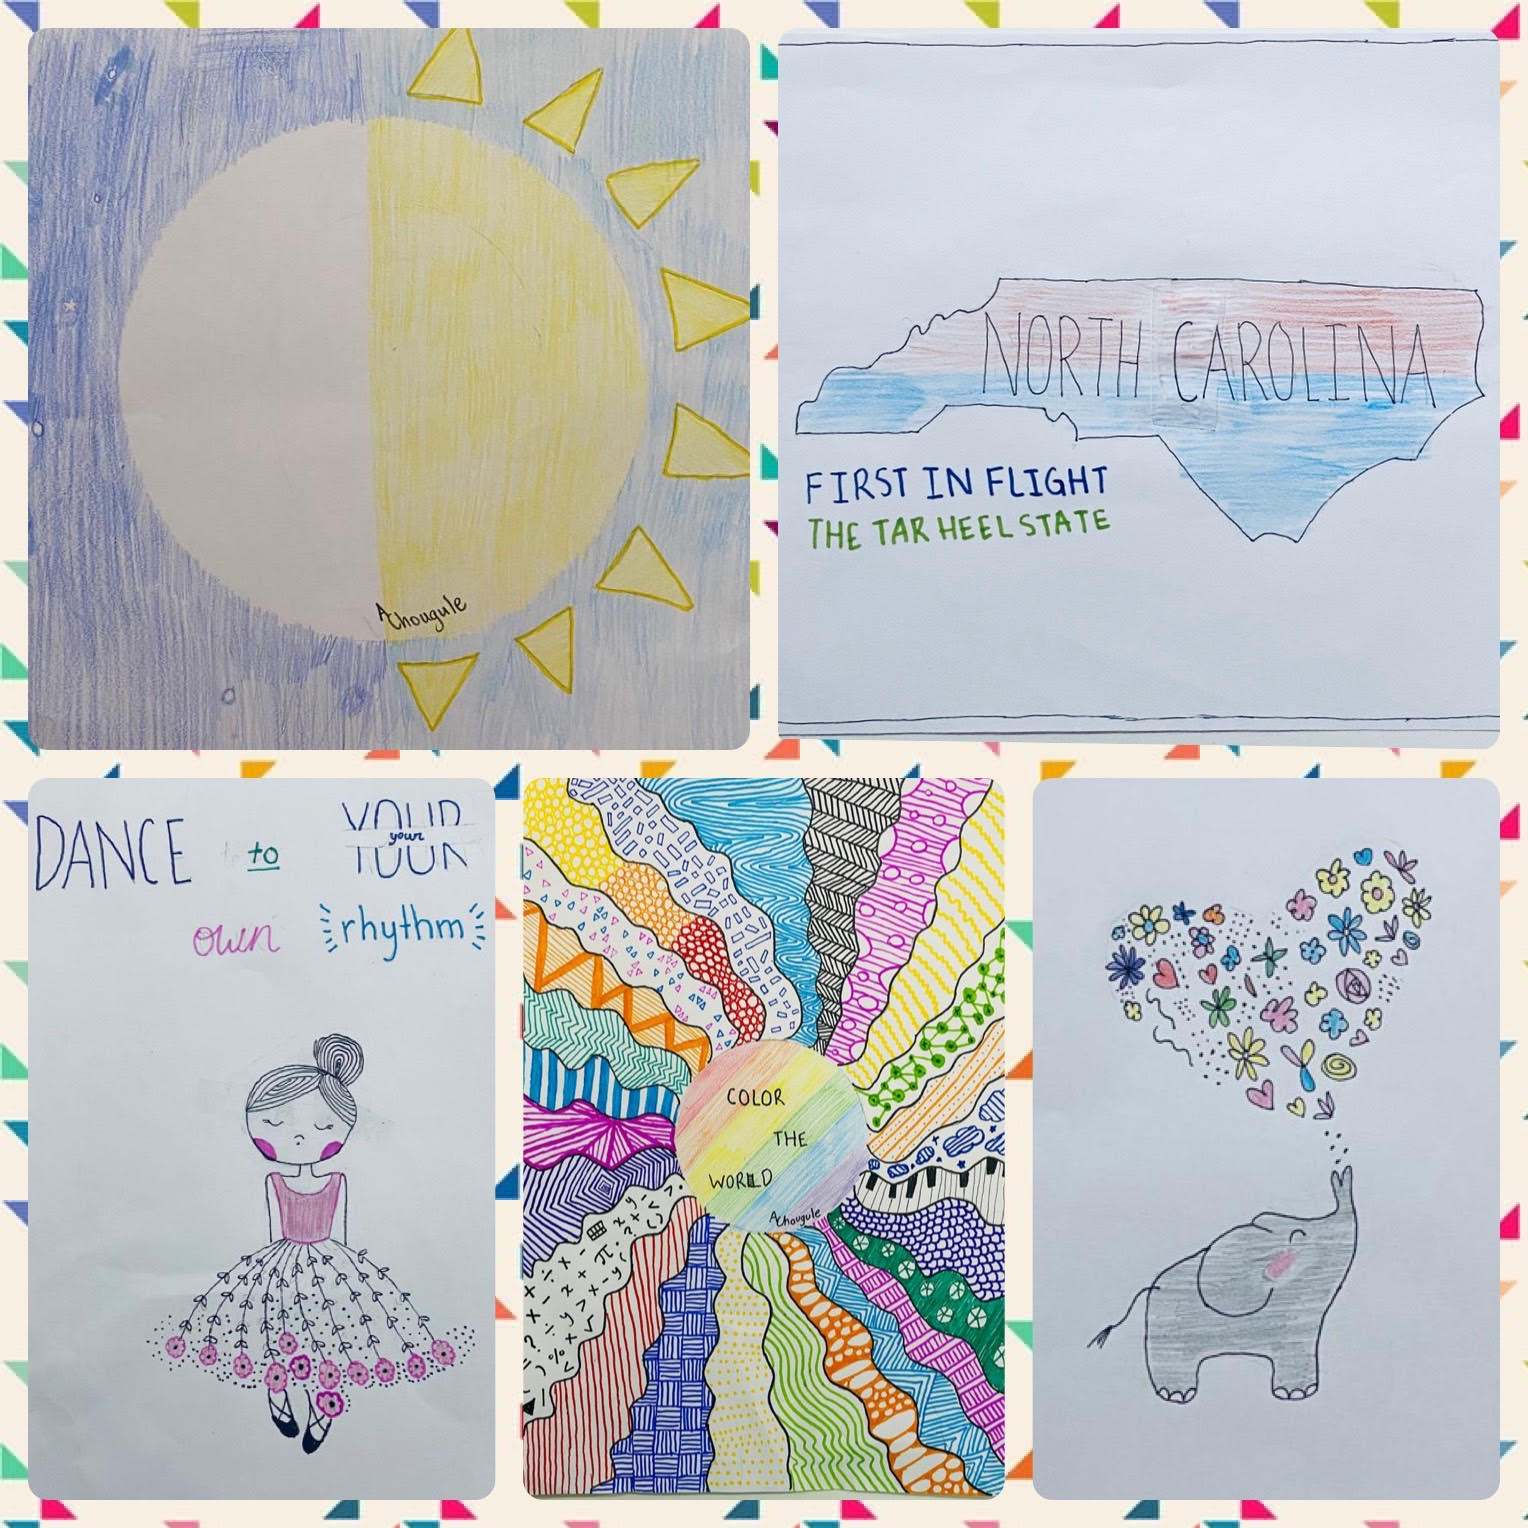 AChougule
NORTH CAROLINA
FIRST IN FLIGHT
THE TAR HEEL STATE
DANCE to your
own rhythm
COLOR
THE
WORLD
AChougule